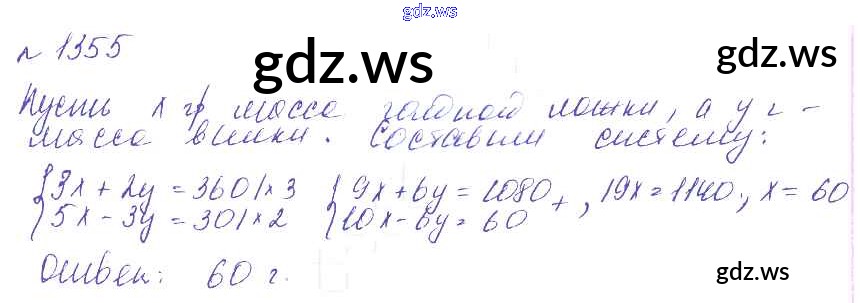 gdz.ws
№ 1355
gdz.ws
gdz.ws
Пусть х гр масса чайной ложки, а у г -
масса вилки. Составим систему:
{3x + 2y = 360 | × 3 {9x + 6y = 1080 + , 19x = 1140, x = 60
{5x - 3y = 30 | × 2 {10x - 6y = 60
Ответ: 60 г.
gdz.ws